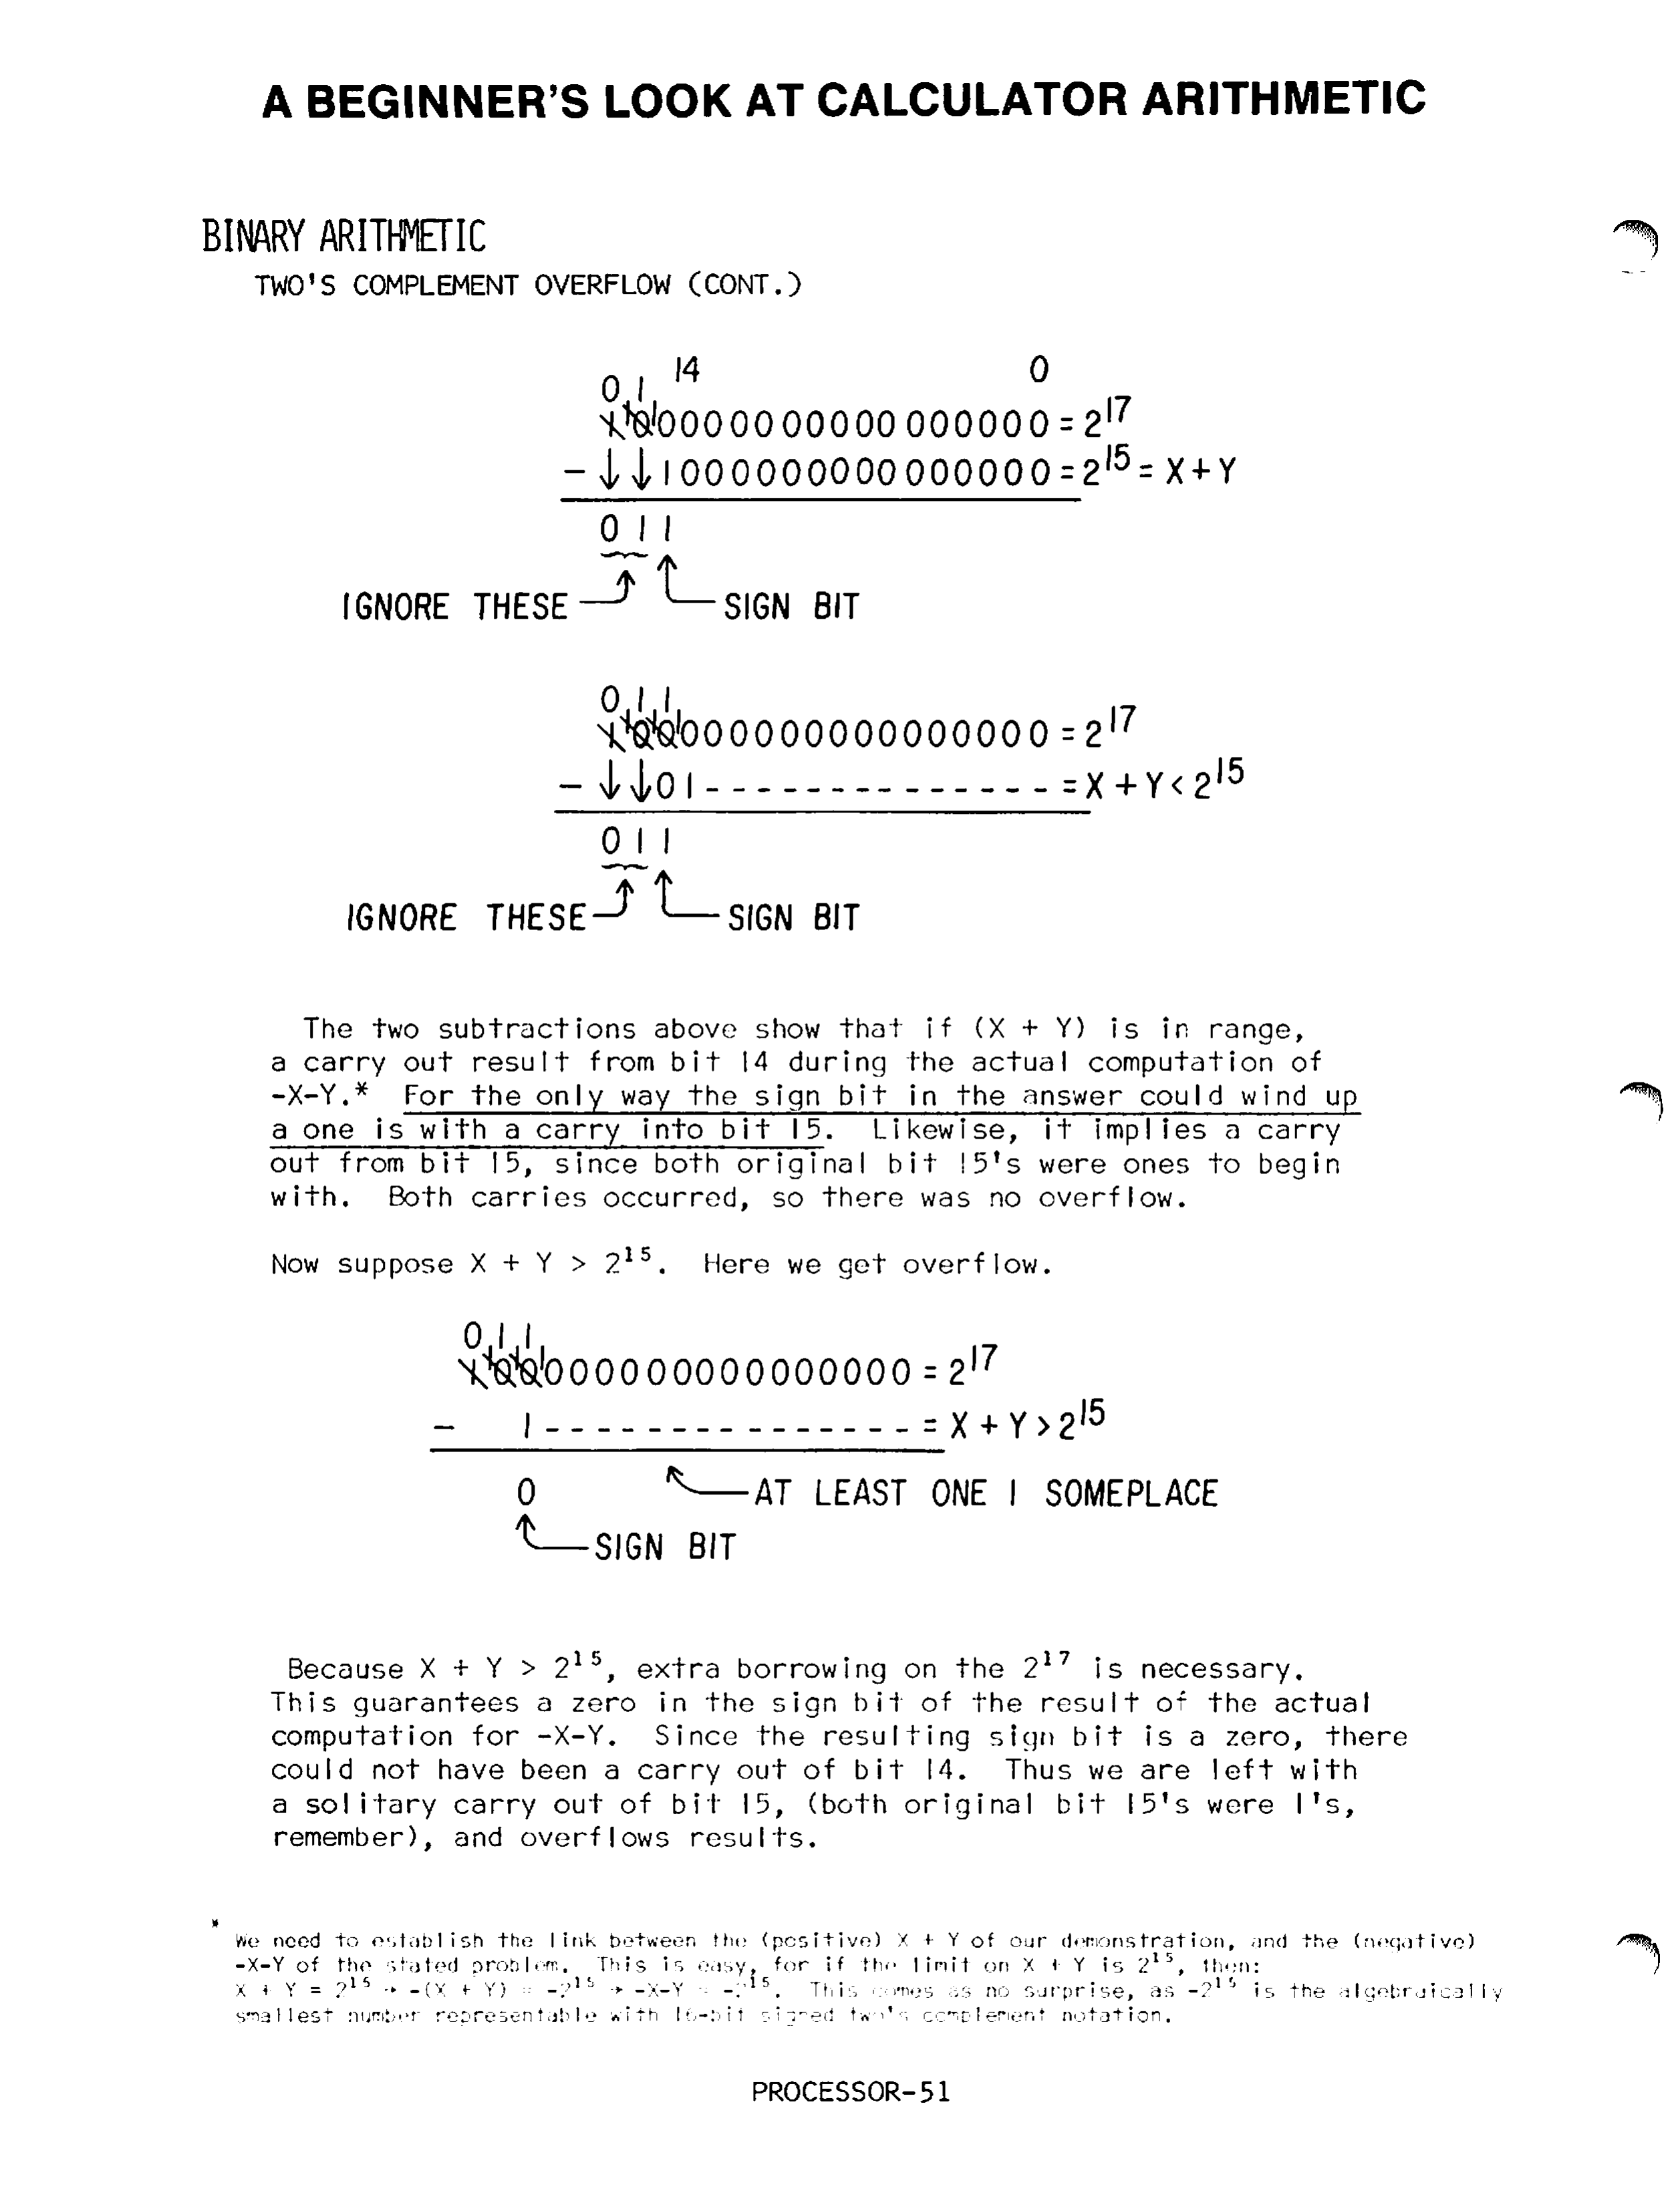 A BEGINNER'S LOOK AT CALCULATOR ARITHMETIC
BINARY ARITHMETIC
TWO'S COMPLEMENT OVERFLOW (CONT.)
14 0
0 1
1 0 1 0000000000000000 = 2^17
- ↓ ↓ 1000000000000000 = 2^15 = X + Y
0 1 1
IGNORE THESE SIGN BIT
0 1 1
1 0 0 1 000000000000000 = 2^17
- ↓ ↓ 0 1 - - - - - - - - - - - - - - = X + Y < 2^15
0 1 1
IGNORE THESE SIGN BIT
The two subtractions above show that if (X + Y) is in range,
a carry out result from bit 14 during the actual computation of
-X-Y.* For the only way the sign bit in the answer could wind up
a one is with a carry into bit 15. Likewise, it implies a carry
out from bit 15, since both original bit 15's were ones to begin
with. Both carries occurred, so there was no overflow.
Now suppose X + Y > 2^15. Here we get overflow.
0 1 1
1 0 0 1 000000000000000 = 2^17
- 1 - - - - - - - - - - - - - - - = X + Y > 2^15
0 AT LEAST ONE 1 SOMEPLACE
SIGN BIT
Because X + Y > 2^15, extra borrowing on the 2^17 is necessary.
This guarantees a zero in the sign bit of the result of the actual
computation for -X-Y. Since the resulting sign bit is a zero, there
could not have been a carry out of bit 14. Thus we are left with
a solitary carry out of bit 15, (both original bit 15's were 1's,
remember), and overflows results.
* We need to establish the link between the (positive) X + Y of our demonstration, and the (negative)
-X-Y of the stated problem. This is easy, for if the limit on X + Y is 2^15, then:
X + Y = 2^15 → -(X + Y) = -2^15 → -X-Y = -2^15. This comes as no surprise, as -2^15 is the algebraically
smallest number representable with 16-bit signed two's complement notation.
PROCESSOR-51